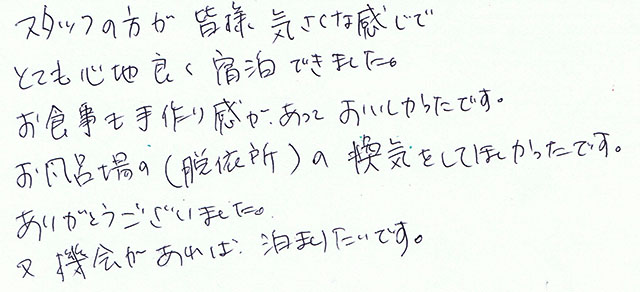 スタッフの方が 皆様 気さくな感じで
とても心地良く 宿泊できました。
お食事も手作り感が、あって おいしかったです。
お風呂場の(脱依所)の 換気をしてほしかったです。
ありがとうございました。
又 機会があれば 泊まりたいです。